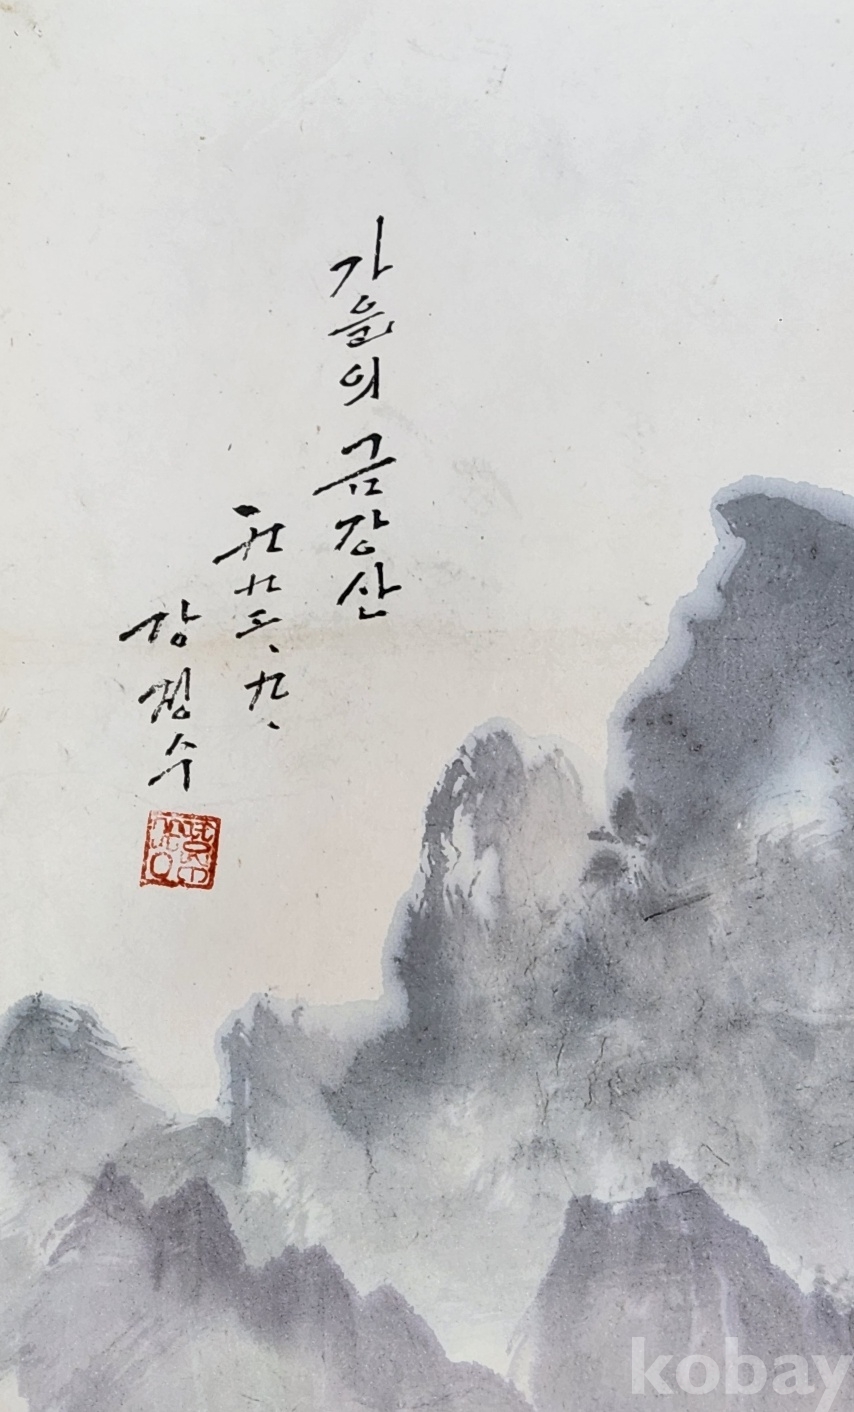 가을의 금강산
一九九三、九、
강정수
kobay